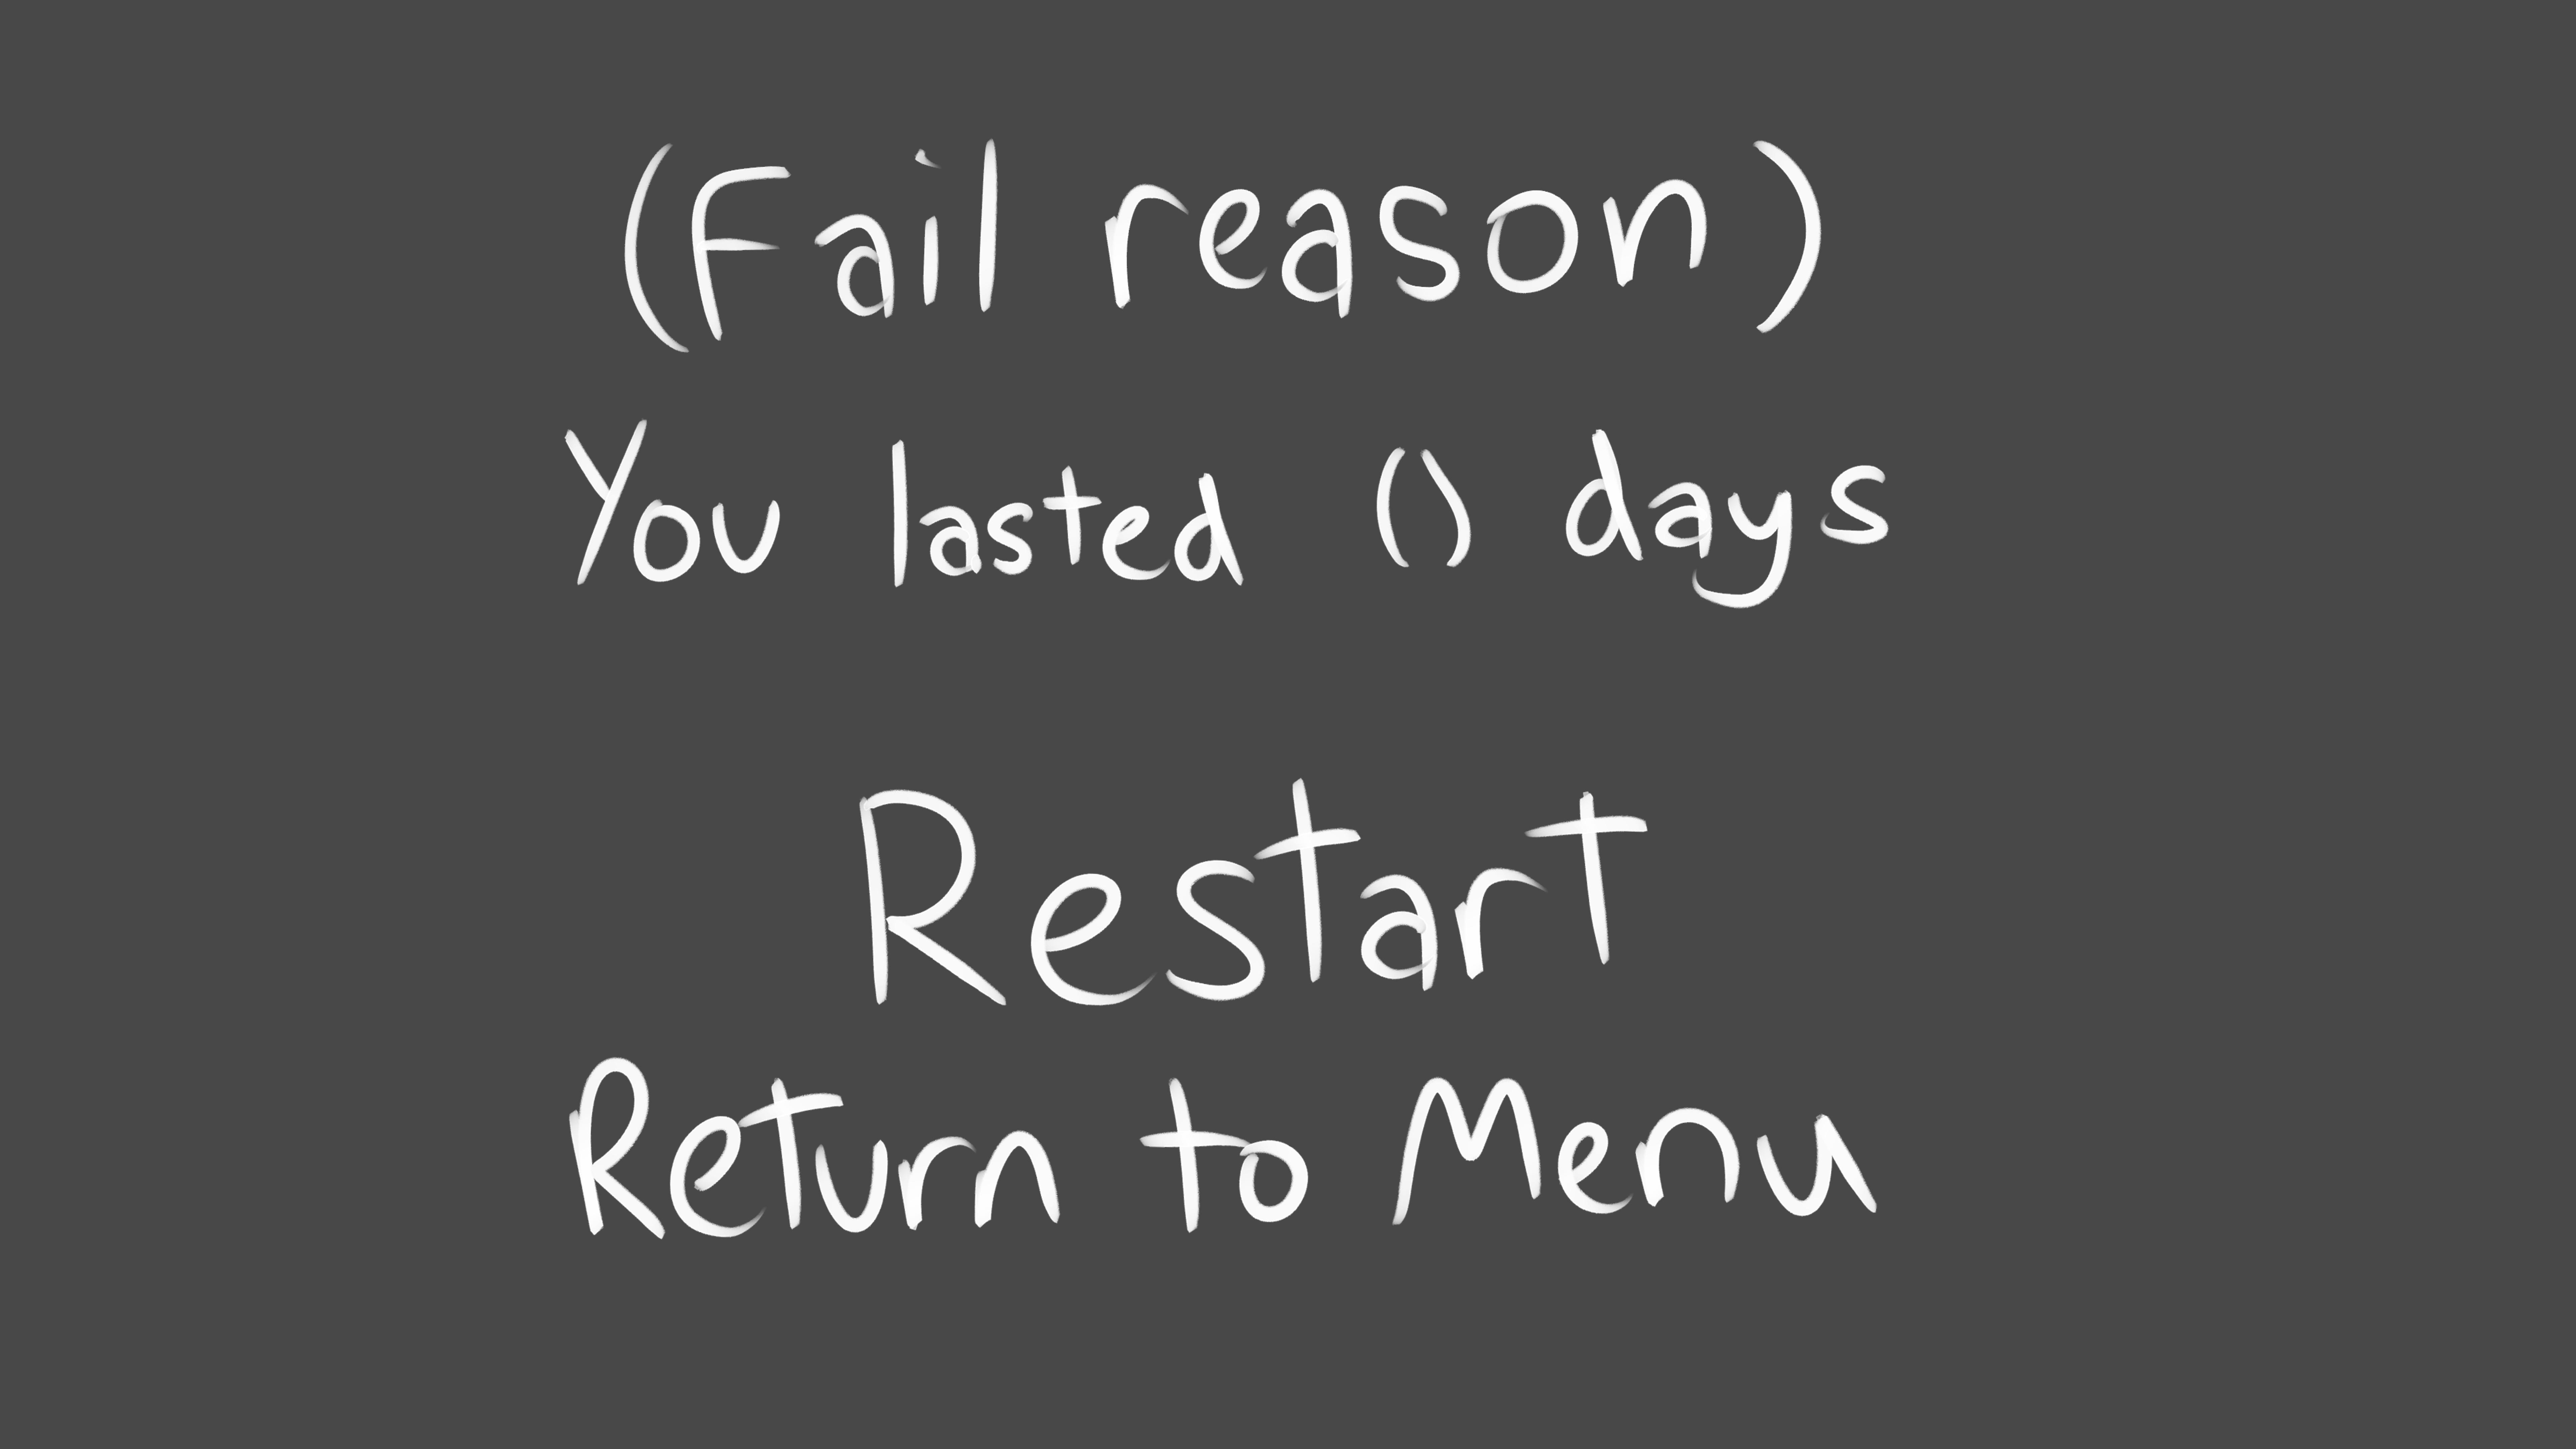 (Fail reason)
You lasted () days
Restart
Return to Menu